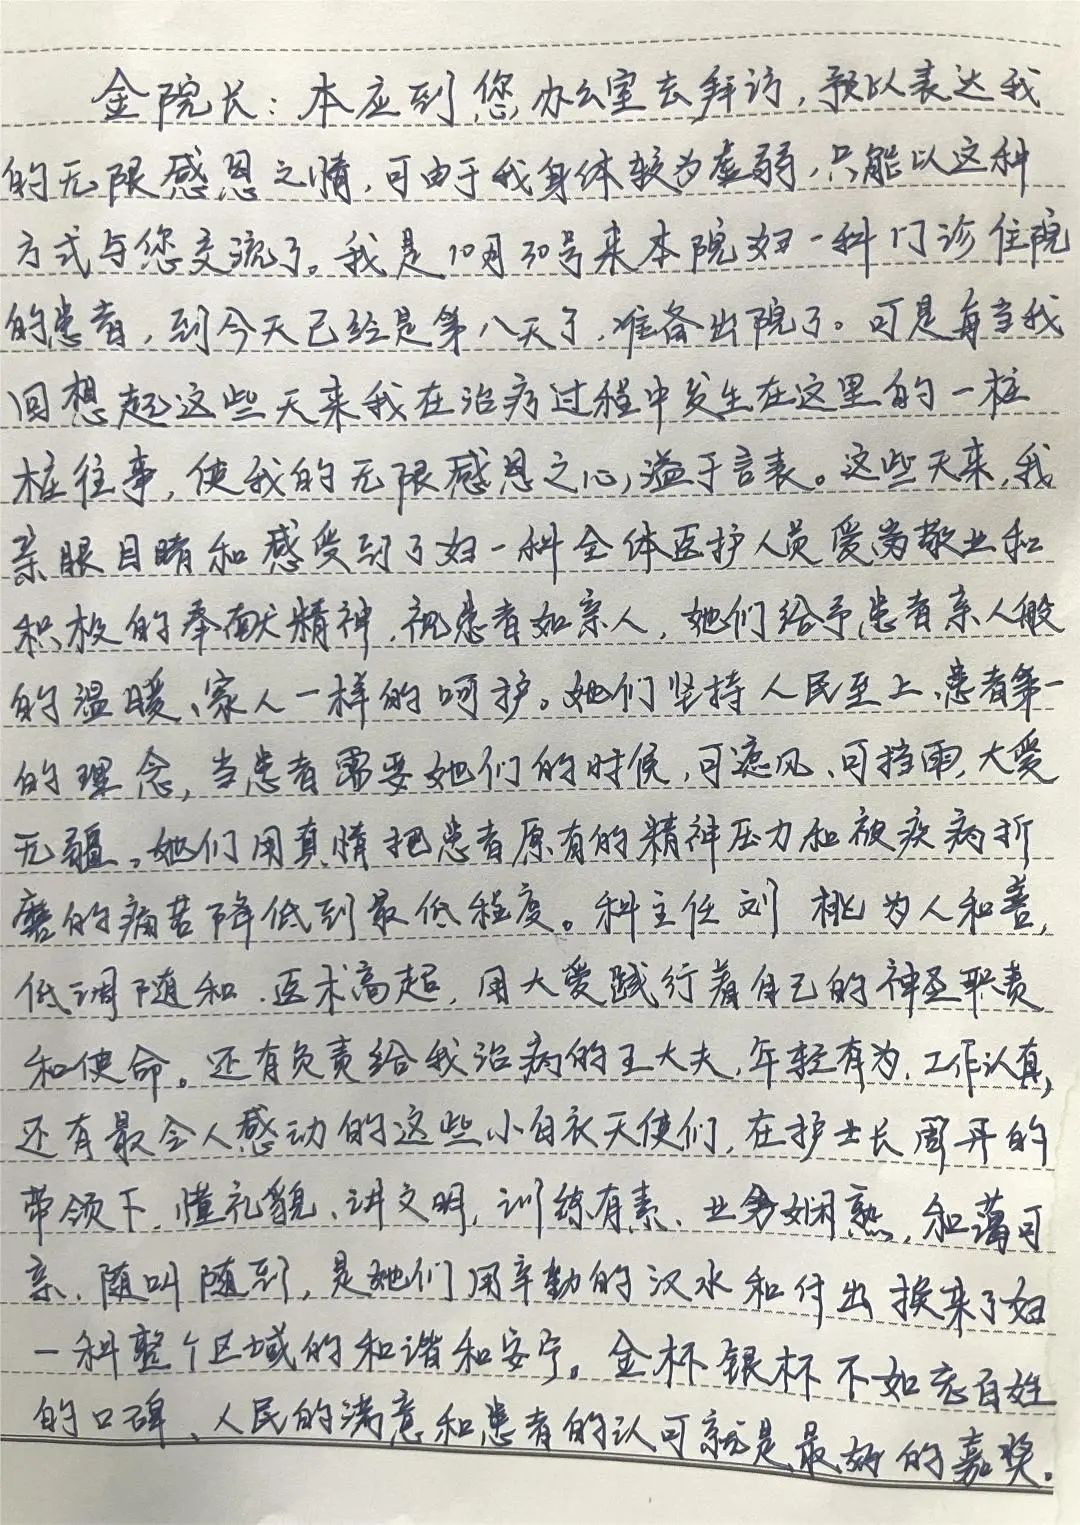 金院长：本应到您办公室去拜访，预以表达我
的无限感恩之情，可由于我身体较为虚弱，只能以这种
方式与您交流了。我是10月30号来本院妇一科门诊住院
的患者，到今天已经是第八天了，准备出院了。可是每当我
回想起这些天来我在治疗过程中发生在这里的一桩
桩往事，使我的无限感恩之心，溢于言表。这些天来，我
亲眼目睹和感受到了妇一科全体医护人员爱岗敬业和
积极的奉献精神，视患者如亲人，她们给予患者亲人般
的温暖、家人一样的呵护。她们坚持人民至上、患者第一
的理念，当患者需要她们的时候，可遮风、可挡雨，大爱
无疆。她们用真情把患者原有的精神压力和被疾病折
磨的痛苦降低到最低程度。科主任刘 桃为人和善，
低调随和、医术高超，用大爱践行着自己的神圣职责
和使命。还有负责给我治病的王大夫，年轻有为，工作认真，
还有最令人感动的这些小白衣天使们，在护士长周丹的
带领下，懂礼貌、讲文明，训练有素、业务娴熟，和蔼可
亲、随叫随到，是她们用辛勤的汗水和付出换来了妇
一科整个区域的和谐和安宁。金杯银杯不如老百姓
的口碑、人民的满意和患者的认可就是最好的嘉奖。